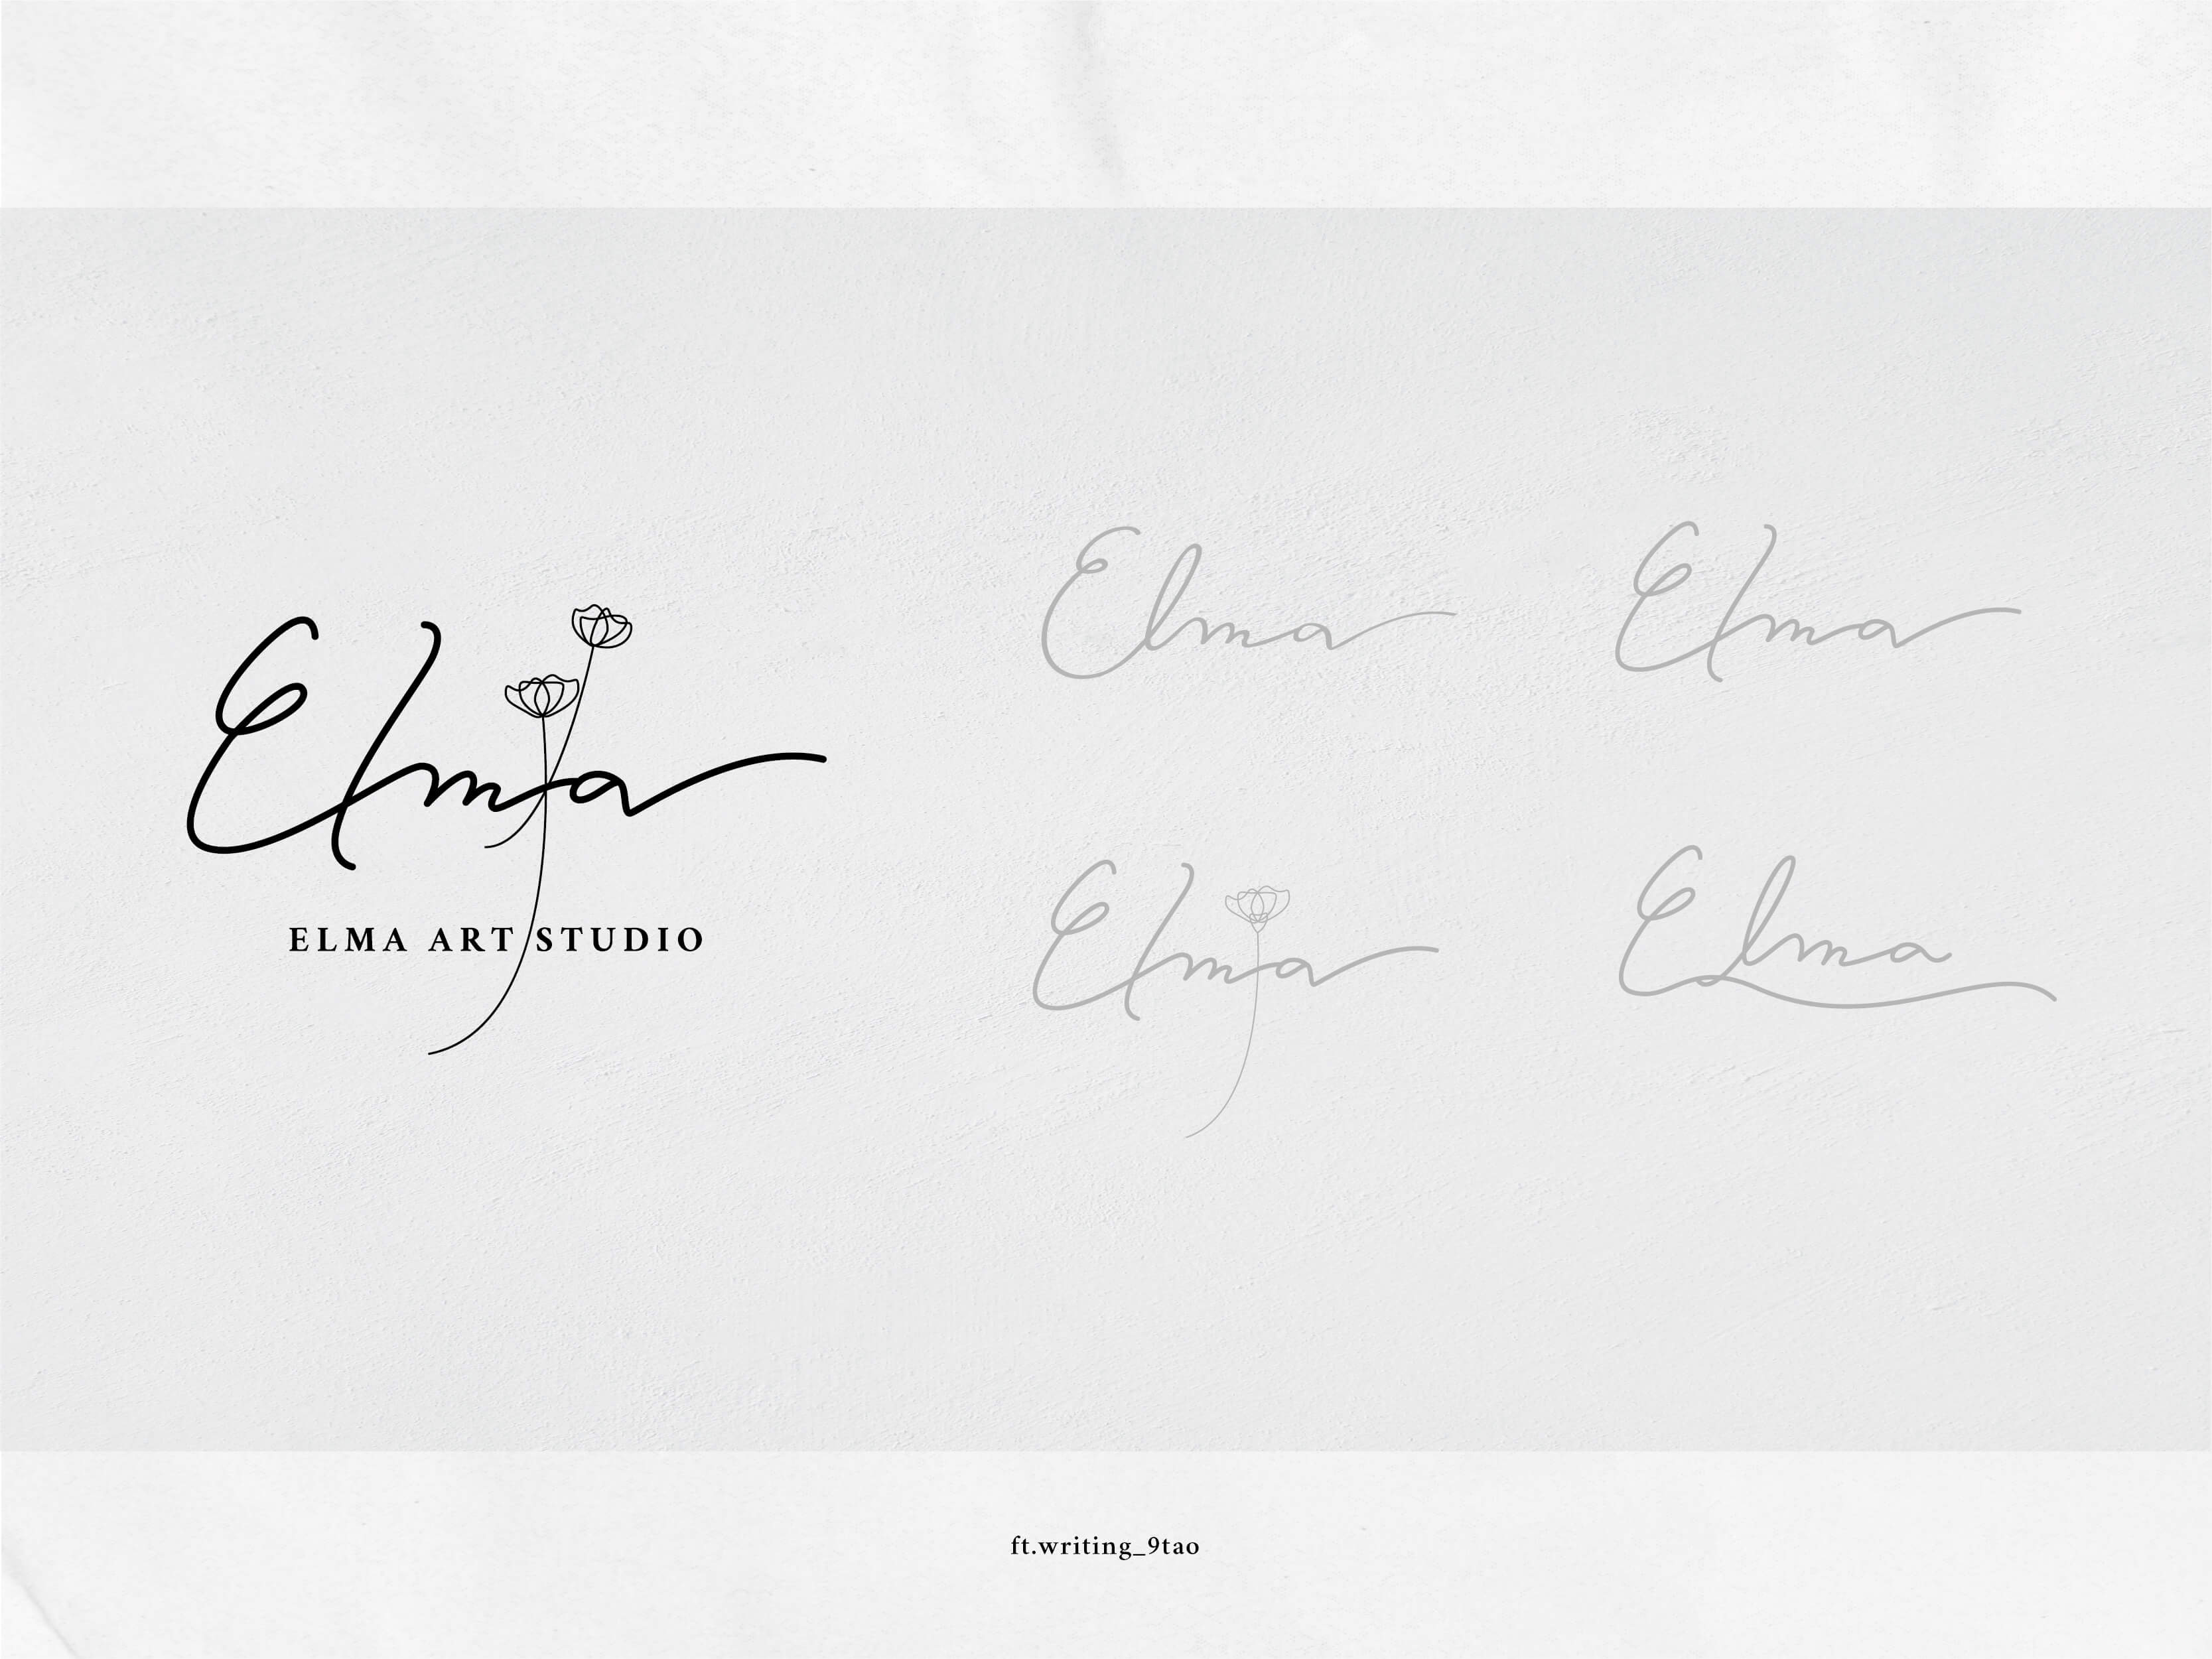 Elma
ELMA ART STUDIO
Elma
Elma
Elma
Elma
ft.writing_9tao